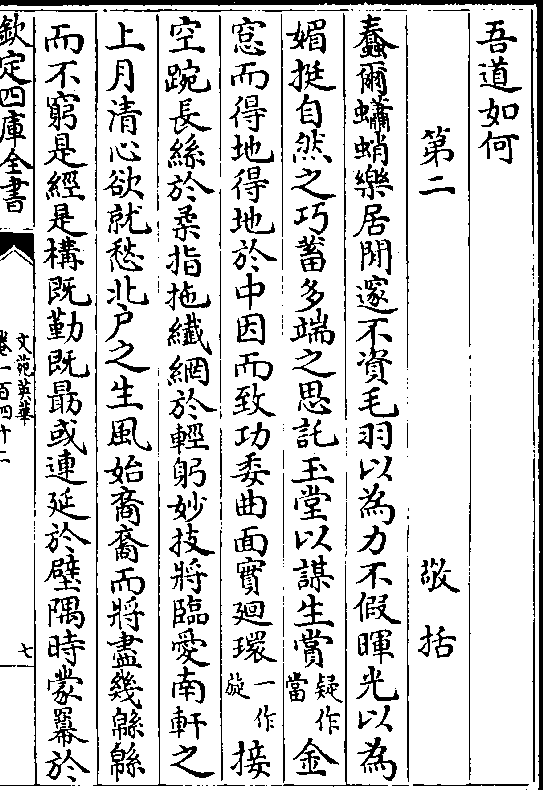 吾道如何
第二 敬括
蠢爾蠨蛸樂居閒邃不資毛羽以為力不假暉光以為
媚挺自然之巧蓄多端之思託玉堂以謀生賞疑作當金
窓而得地得地於中因而致功委曲面實廻環一作旋接
空踠長絲於柔指拖纖網於輕躬妙技將臨愛南軒之
上月清心欲就愁北戶之生風始裔裔而將盡幾緜緜
而不窮是經是構既勤既勗或連延於壁隅時蒙羃於
欽定四庫全書
文苑英華
卷一百四十二
七